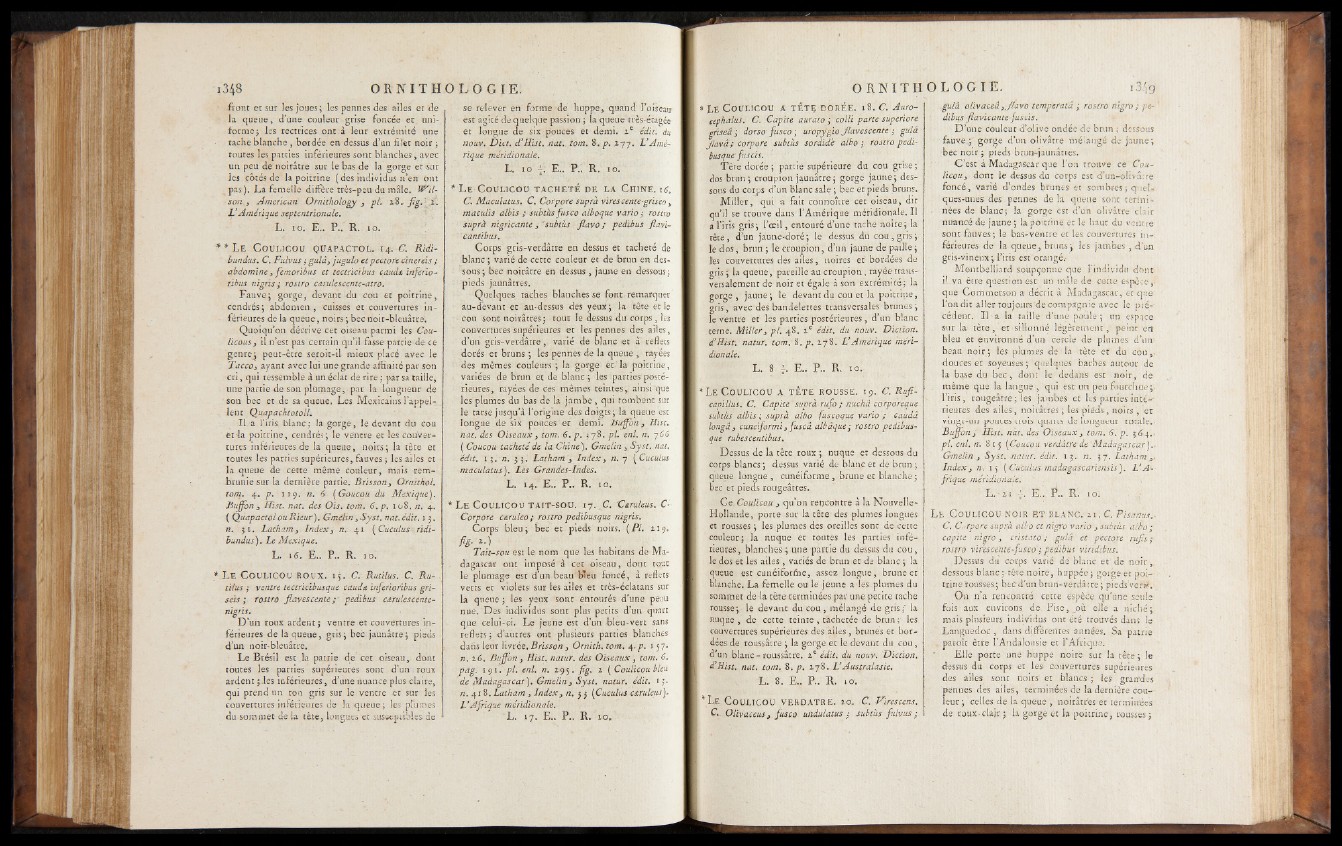 1348 ORNITHOLOGIE.
front et sur les joues; les pennes des ailes et de
la queue, d'une couleur grise foncée et uni-
forme; les rectrices ont à leur extrémité une
tache blanche, bordée en dessus d'un filet noir;
toutes les parties inférieures sont blanches, avec
un peu de noirâtre sur le bas de la gorge et sur
les côtés de la poitrine (des individus n'en ont
pas). La femelle diffère très-peu du mâle. Wil-
son, American Ornithology, pl. 28. fig. 2.
L'Amérique septentrionale.
L. 10. E.. P.. R. 10.
** LE COULICOU QUAPACTOL. 14. C. Ridi-
bundus. C. Fulvus; gulâ, jugulo et pectore cinereis;
abdomine, femoribus et tectricibus caudæ inferio-
ribus nigris; rostro cærulescente-atro.
Fauve; gorge, devant du cou et poitrine,
cendrés; abdomen, cuisses et couvertures in-
férieures de la queue, noirs; bec noir-bleuâtre.
Quoiqu'on décrive cet oiseau parmi les Cou-
licous, il n'est pas certain qu'il fasse partie de ce
genre; peut-être seroit-il mieux placé avec le
Tacco, ayant avec lui une grande affinité par son
cri, qui ressemble à un éclat de rire; par sa taille,
une partie de son plumage, par la longueur de
son bec et de sa queue. Les Mexicains l'appel-
lent Quapachtototl.
Il a l'iris blanc; la gorge, le devant du cou
et la poitrine, cendrés; le ventre et les couver-
tures inférieures de la queue, noirs; la tête et
toutes les parties supérieures, fauves; les ailes et
la queue de cette même couleur, mais rem-
brunie sur la dernière partie. Brisson, Ornithol.
tom. 4. p. 119. n. 6 (Goucou du Mexique).
Buffon, Hist. nat. des Ois. tom. 6. p. 108. n. 4.
(Quapactol ou Rieur). Gmelin, Syst. nat. édit. 13.
n. 31. Latham, Index, n. 41 (Cuculus ridi-
bundus). Le Mexique.
L. 16. E.. P.. R. 10.
* LE COULICOU ROUX. 15. C. Rutilus. C. Ru-
tilus; ventre tectricibusque caudâ inferioribus gri-
seis; rostro flavescente; pedibus cærulescente-
nigris.
D'un roux ardent; ventre et couvertures in-
férieures de la queue, gris; bec jaunâtre; pieds
d'un noir-bleuâtre.
Le Brésil est la patrie de cet oiseau, dont
toutes les parties supérieures sont d'un roux
ardent; les inférieures, d'une nuance plus claire,
qui prend un ton gris sur le ventre et sur les
couvertures inférieures de la queue; les plumes
du sommet de la tête, longues et susceptibles de
se relever en forme de huppe, quand l'oiseau
est agité de quelque passion; la queue très-étagée
et longue de six pouces et demi. 2e édit. du
nouv. Dict. d'Hist. nat. tom. 8. p. 277. L'Amé-
rique méridionale.
L. 10 ½. E.. P.. R. 10.
* LE COULICOU TACHETÉ DE LA CHINE. 16.
C. Maculatus. C. Corpore suprà virescente-griseo,
maculis albis; subtùs fusco alboque vario; rostro
suprà nigricante, subtùs flavo; pedibus flavi-
cantibus.
Corps gris-verdâtre en dessus et tacheté de
blanc; varié de cette couleur et de brun en des-
sous; bec noirâtre en dessus, jaune en dessous;
pieds jaunâtres.
Quelques taches blanches se font remarquer
au-devant et au-dessus des yeux; la tête et le
cou sont noirâtres; tout le dessus du corps, les
couvertures supérieures et les pennes des ailes,
d'un gris-verdâtre, varié de blanc et à reflets
dorés et bruns; les pennes de la queue, rayées
des mêmes couleurs; la gorge et la poitrine,
variées de brun et de blanc; les parties posté-
rieures, rayées de ces mêmes teintes, ainsi que
les plumes du bas de la jambe, qui tombent sur
le tarse jusqu'à l'origine des doigts; la queue est
longue de six pouces et demi. Buffon, Hist.
nat. des Oiseaux, tom. 6. p. 178. pl. enl. n. 766
(Coucou tacheté de la Chine). Gmelin, Syst. nat.
édit. 13. n. 33. Latham, Index, n. 7 (Cuculus
maculatus). Les Grandes-Indes.
L. 14. E.. P.. R. 10.
* LE COULICOU TAIT-SOU. 17. C. Cæruleus. C.
Corpore cæruleo; rostro pedibusque nigris.
Corps bleu; bec et pieds noirs. (Pl. 219.
fig. 2.)
Tait-sou est le nom que les habitans de Ma-
dagascar ont imposé à cet oiseau, dont tout
le plumage est d'un beau bleu foncé, à reflets
verts et violets sur les ailes et très-éclatans sur
la queue; les yeux sont entourés d'une peau
nue. Des individus sont plus petits d'un quart
que celui-ci. Le jeune est d'un bleu-vert sans
reflets; d'autres ont plusieurs parties blanches
dans leur livrée. Brisson, Ornith. tom. 4. p. 157.
n. 26. Buffon, Hist. natur. des Oiseaux, tom. 6.
pag. 391. pl. enl. n. 295. fig. 2 (Coulicou bleu
de Madagascar). Gmelin, Syst. natur. édit. 13.
n. 418. Latham, Index, n. 53 (Cuculus cæruleus).
L'Afrique méridionale.
L. 17. E.. P.. R. 10.
ORNITHOLOGIE. 1349
* LE COULICOU A TÊTE DORÉE. 18. C. Auro-
cephalus. C. Capite aurato; colli parte superiore
griseâ; dorso fusco; uropygio flavescente; gulâ
flavâ; corpore subtùs sordidè albo; rostro pedi-
busque fuscis.
Tête dorée; partie supérieure du cou grise;
dos brun; croupion jaunâtre; gorge jaune; des-
sous du corps d'un blanc sale; bec et pieds bruns.
Miller, qui a fait connoître cet oiseau, dit
qu'il se trouve dans l'Amérique méridionale. Il
a l'iris gris; l'œil, entouré d'une tache noire; la
tête, d'un jaune-doré; le dessus du cou, gris;
le dos, brun; le croupion, d'un jaune de paille;
les couvertures des ailes, noires et bordées de
gris; la queue, pareille au croupion, rayée trans-
versalement de noir et égale à son extrémité; la
gorge, jaune; le devant du cou et la poitrine,
gris, avec des bandelettes transversales brunes;
le ventre et les parties postérieures, d'un blanc
terne. Miller, pl. 48. 2e édit. du nouv. Diction.
d'Hist. natur. tom. 8. p. 278. L'Amérique méri-
dionale.
L. 8 ½. E.. P.. R. 10.
* LE COULICOU A TÊTE ROUSSE. 19. C. Rufi-
capillus. C. Capite suprà rufo; nuchâ corporeque
subtùs albis; suprà albo fuscoque vario; caudâ
longâ, cuneiformi, fuscâ albâque; rostro pedibus-
que rubescentibus.
Dessus de la tête roux; nuque et dessous du
corps blancs; dessus varié de blanc et de brun;
queue longue, cunéiforme, brune et blanche;
bec et pieds rougeâtres.
Ce Coulicou, qu'on rencontre à la Nouvelle-
Hollande, porte sur la tête des plumes longues
et rousses; les plumes des oreilles sont de cette
couleur; la nuque et toutes les parties infé-
rieures, blanches; une partie du dessus du cou,
le dos et les ailes, variés de brun et de blanc; la
queue est cunéiforme, assez longue, brune et
blanche. La femelle ou le jeune a les plumes du
sommet de la tête terminées par une petite tache
rousse; le devant du cou, mélangé de gris; la
nuque, de cette teinte, tachetée de brun; les
couvertures supérieures des ailes, brunes et bor-
dées de roussâtre; la gorge et le devant du cou,
d'un blanc-roussâtre. 2e édit. du nouv. Diction.
d'Hist. nat. tom. 8. p. 278. L'Australasie.
L. 8. E.. P.. R. 10.
* LE COULICOU VERDATRE. 20. C. Virescens.
C. Olivaceus, fusco undulatus; subtùs fulvus;
gulâ olivaceâ, flavo temperatâ; rostro nigro; pe-
dibus flavicante fuscis.
D'une couleur d'olive ondée de brun; dessous
fauve; gorge d'un olivâtre mélangé de jaune;
bec noir; pieds brun-jaunâtres.
C'est à Madagascar que l'on trouve ce Cou-
licou, dont le dessus du corps est d'un-olivâtre
foncé, varié d'ondes brunes et sombres; quel-
ques-unes des pennes de la queue sont termi-
nées de blanc; la gorge est d'un olivâtre clair
nuancé de jaune; la poitrine et le haut du ventre
sont fauves; le bas-ventre et les couvertures in-
férieures de la queue, bruns; les jambes, d'un
gris-vineux; l'iris est orangé.
Montbelliard soupçonne que l'individu dont
il va être question est un mâle de cette espèce,
que Commerson a décrit à Madagascar, et que
l'on dit aller toujours de compagnie avec le pré-
cédent. Il a la taille d'une poule; un espace
sur la tête, et sillonné légèrement, peint en
bleu et environné d'un cercle de plumes d'un
beau noir; les plumes de la tête et du cou,
douces et soyeuses; quelques barbes autour de
la base du bec, dont le dedans est noir, de
même que la langue, qui est un peu fourchue;
l'iris, rougeâtre; les jambes et les parties inté-
rieures des ailes, noirâtres; les pieds, noirs, et
vingt-un pouces trois quarts de longueur totale.
Buffon, Hist. nat. des Oiseaux, tom. 6. p. 364.
pl. enl. n. 815 (Coucou verdâtre de Madagascar).
Gmelin, Syst. natur. édit. 13. n. 37. Latham,
Index, n. 15 (Cuculus madagascariensis). L'A-
frique méridionale.
L. 21 ½. E.. P.. R. 10.
LE COULICOU NOIR ET BLANC. 21. C. Pisanus.
C. Corpore suprà albo et nigro vario, subtùs albo;
capite nigro, cristato; gulâ et pectore rufis;
rostro virescente-fusco; pedibus viridibus.
Dessus du corps varié de blanc et de noir,
dessous blanc; tête noire, huppée; gorge et poi-
trine rousses; bec d'un brun-verdâtre; pieds verts.
On n'a rencontré cette espèce qu'une seule
fois aux environs de Pise, où elle a niché;
mais plusieurs individus ont été trouvés dans le
Languedoc, dans différentes années. Sa patrie
paroît être l'Andalousie et l'Afrique.
Elle porte une huppe noire sur la tête; le
dessus du corps et les couvertures supérieures
des ailes sont noirs et blancs; les grandes
pennes des ailes, terminées de la dernière cou-
leur; celles de la queue, noirâtres et terminées
de roux-clair; la gorge et la poitrine, rousses;